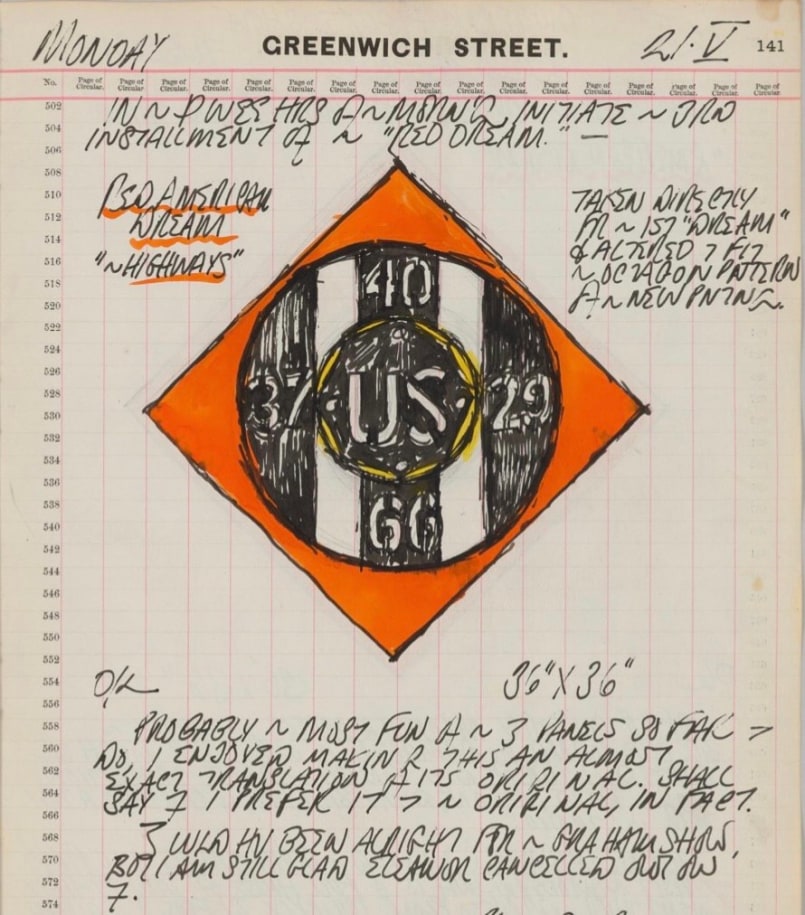 MONDAY GREENWICH STREET. 21·V 141
No. Page of Circular. Page of Circular. Page of Circular. Page of Circular. Page of Circular. Page of Circular. Page of Circular. Page of Circular. Page of Circular. Page of Circular. Page of Circular. Page of Circular. Page of Circular. Page of Circular. Page of Circular. Page of Circular. Page of Circular.
502 IN ~ WEE HRS ~ MORN'G INITIATE ~ 3RD
504 INSTALLMENT OF ~ "RED DREAM." —
506
508
510 RED AMERICAN
512 DREAM
514
516 "~HIGHWAYS"
518
TAKEN DIRECTLY
FR ~ 1ST "DREAM"
& ALTERED 7 FIT
~ OCTAGON PATTERN
~ NEW PNTNG.
40
37 US 29
66
520
522
524
526
528
530
532
534
536
538
540
542
544
546
548
550
552
554 O/K 36" X 36"
556
558 PROBABLY ~ MOST FUN ~ 3 PANELS SO FAR 7
560 DO, I ENJOYED MAKING THIS AN ALMOST
562 EXACT TRANSLATION OF ITS ORIGINAL. SHALL
564 SAY 7 I PREFER IT 7 ~ ORIGINAL, IN FACT.
566
568 7 WLD HV BEEN ALRIGHT FR ~ GRAHAM SHOW,
570 BUT I AM STILL GLAD ELEANOR CANCELLED OUT ON
572 7.
574